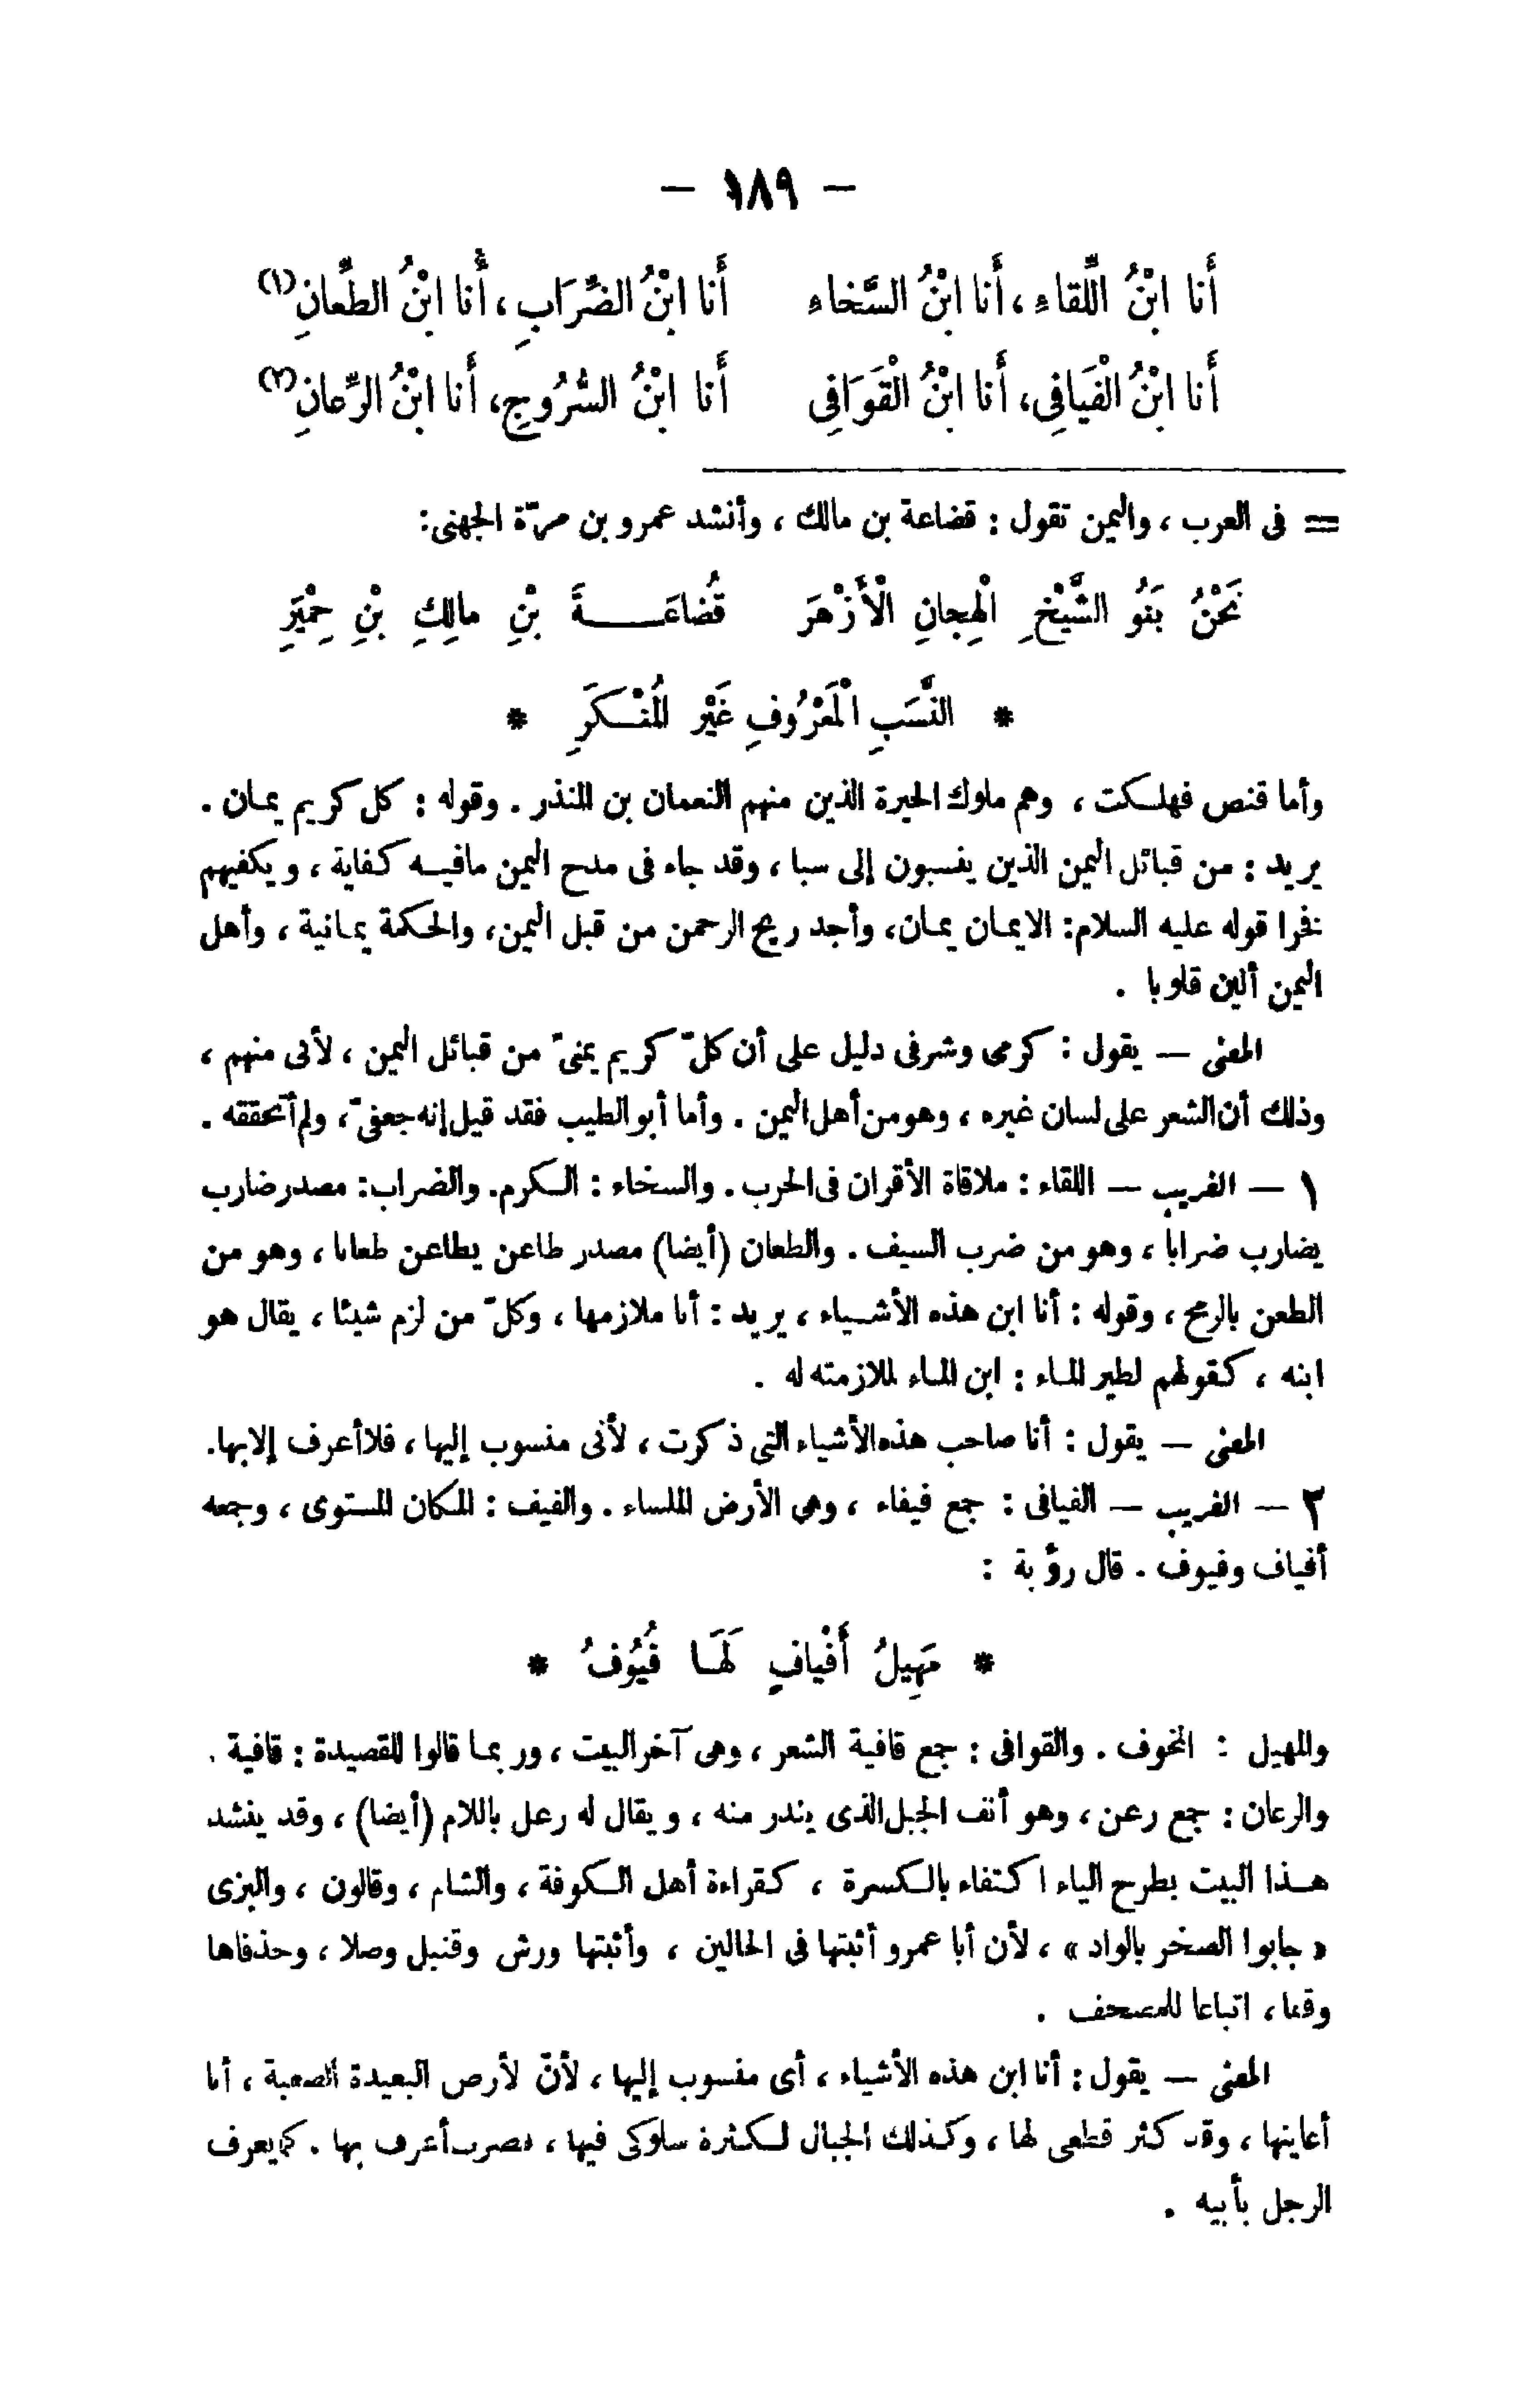 — ١٨٩ —
أَنا ابْنُ اللِّقاء ، أَنا ابْنُ السَّخاء أَنا ابْنُ الضِّرَابِ ، أَنا ابْنُ الطِّعانِ (١)
أَنا ابْنُ الْفَيَافِى، أَنا ابْنُ الْقَوَافِى أَنا ابْنُ السُّرُوجِ، أَنا ابْنُ الرِّعانِ (٢)
= فى العرب ، واليمن تقول : قضاعة بن مالك ، وأنشد عمرو بن مرّة الجهنى:
نَحْنُ بَنُو الشَّيْخِ الْهِجانِ الْأَزْهَرَ قُضاعَـــةَ بْنِ مالِكِ بْنِ حِمْيَرِ
* النَّسَبِ الْمَعْرُوفِ غَيْر الْمُنْـكَرِ *
وأما قنص فهلـكت ، وهم ملوك الحيرة الذين منهم النعمان بن المنذر . وقوله : كل كريم يمان .
يريد : من قبائل اليمن الذين ينسبون إلى سبا ، وقد جاء فى مدح اليمن مافيـه كفاية ، ويكفيهم
فخرا قوله عليه السلام: الايمان يمان، وأجد ريح الرحمن من قبل اليمن، والحكمة يمانية ، وأهل
اليمن ألين قلوبا .
المعنى — يقول : كرمى وشرفى دليل على أن كلّ كريم يمنىّ من قبائل اليمن ، لأنى منهم ،
وذلك أن الشعر على لسان غيره ، وهو من أهل اليمن . وأما أبو الطيب فقد قيل إنه جعفىّ ، ولم أتحققه .
١ — الغريب — اللقاء : ملاقاة الأقران فى الحرب . والسخاء : الـكرم. والضراب: مصدر ضارب
يضارب ضرابا ، وهو من ضرب السيف . والطعان (أيضا) مصدر طاعن يطاعن طعانا ، وهو من
الطعن بالرمح ، وقوله : أنا ابن هذه الأشـياء ، يريد : أنا ملازمها ، وكلّ من لزم شيئا ، يقال هو
ابنه ، كقولهم لطير الماء : ابن الماء لملازمته له .
المعنى — يقول : أنا صاحب هذه الأشياء التى ذكرت ، لأنى منسوب إليها ، فلا أعرف إلا بها.
٢ — الغريب — الفيافى : جمع فيفاء ، وهى الأرض الملساء . والفيف : المكان المستوى ، وجمعه
أفياف وفيوف . قال رؤبة :
* مَهِيلُ أَفْيافٍ لَهَـا فُيُوفُ *
والمهيل : المخوف . والقوافى : جمع قافية الشعر ، وهى آخر البيت ، وربما قالوا للقصيدة : قافية .
والرعان : جمع رعن ، وهو أنف الجبل الذى يندر منه ، ويقال له رعل باللام (أيضا) ، وقد ينشد
هـذا البيت بطرح الياء اكتفاء بالـكسرة ، كقراءة أهل الـكوفة ، والشام ، وقالون ، والبزى
« جابوا الصخر بالواد » ، لأن أبا عمرو أثبتها فى الحالين ، وأثبتها ورش وقنبل وصلا ، وحذفاها
وقفا ، اتباعا للمصحف .
المعنى — يقول : أنا ابن هذه الأشياء ، أى منسوب إليها ، لأنّ لأرض البعيدة الصعبة ، أنا
أعاينها ، وقد كثر قطعى لها ، وكذلك الجبال لـكثرة سلوكى فيها ، فصرت أعرف بها . كما يعرف
الرجل بأبيه .